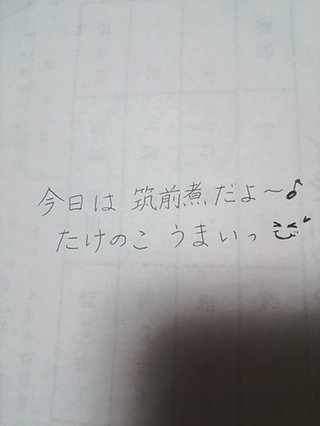 今日は 筑前煮だよ〜♪
たけのこ うまいっ